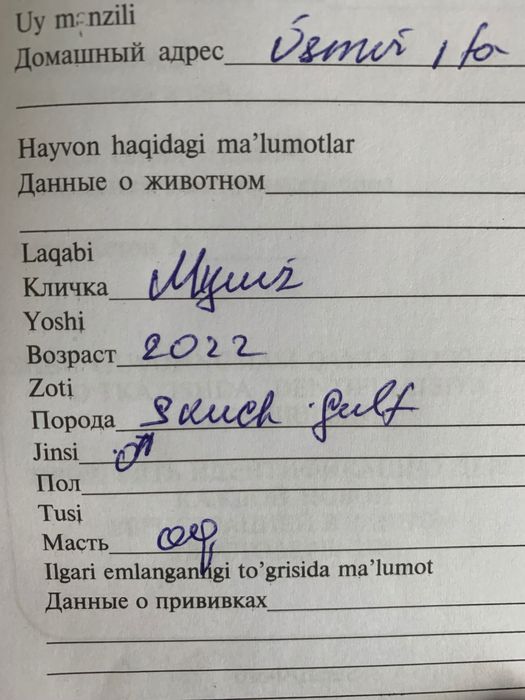 Uy manzili
Домашный адрес
Hayvon haqidagi ma'lumotlar
Данные о животном
Laqabi
Кличка
Yoshi
Возраст 2022
Zoti
Порода gulf
Jinsi ♂
Пол
Tusi
Масть оқ
Ilgari emlanganligi to'grisida ma'lumot
Данные о прививках